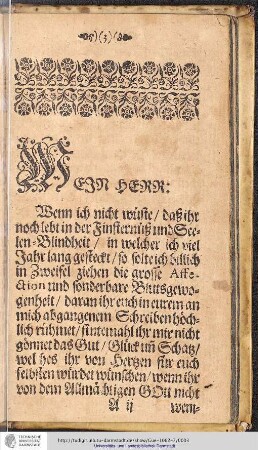 )(3)(
MEIN HERR:
Wenn ich nicht wüste / daß ihr
noch lebt in der Finsternüß und See-
len-Blindheit / in welcher ich viel
Jahr lang gesteckt / so solte ich billich
in Zweifel ziehen die grosse Affe-
ction und sonderbare Bluts gewo-
genheit / daran ihr euch in eurem an
mich abgangenem Schreiben höch-
lich rühmet / sintemahl ihr mir nicht
gönnet das Gut / Glück und Schatz /
welches ihr von Hertzen für euch
selbsten würdet wünschen / wenn ihr
von dem Allmächtigen GOtt nicht
A ij wem-
TECHNISCHE
UNIVERSITÄT
DARMSTADT
Universitäts- und Landesbibliothek Darmstadt